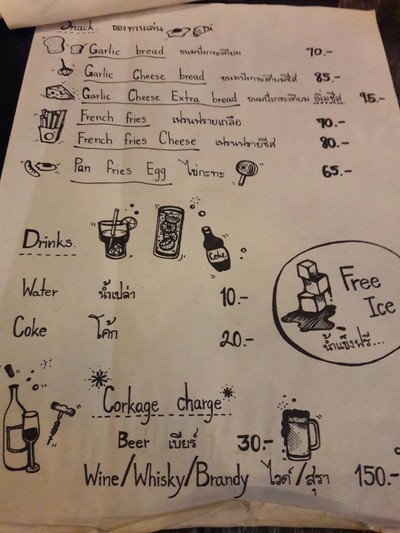 Snack ของทานเล่น
Garlic bread ขนมปังกระเทียม 70.-
Garlic Cheese bread ขนมปังกระเทียมชีส 85.-
Garlic Cheese Extra bread ขนมปังกระเทียม เพิ่มชีส 95.-
French fries เฟรนฟรายเกลือ 70.-
French fries Cheese เฟรนฟรายชีส 80.-
Pan fries Egg ไข่กะทะ 65.-
Drinks.
Coke
Water น้ำเปล่า 10.-
Coke โค้ก 20.-
Free Ice
น้ำแข็งฟรี...
*Corkage charge*
Beer เบียร์ 30.-
Wine/Whisky/Brandy ไวด์/สุรา 150.-